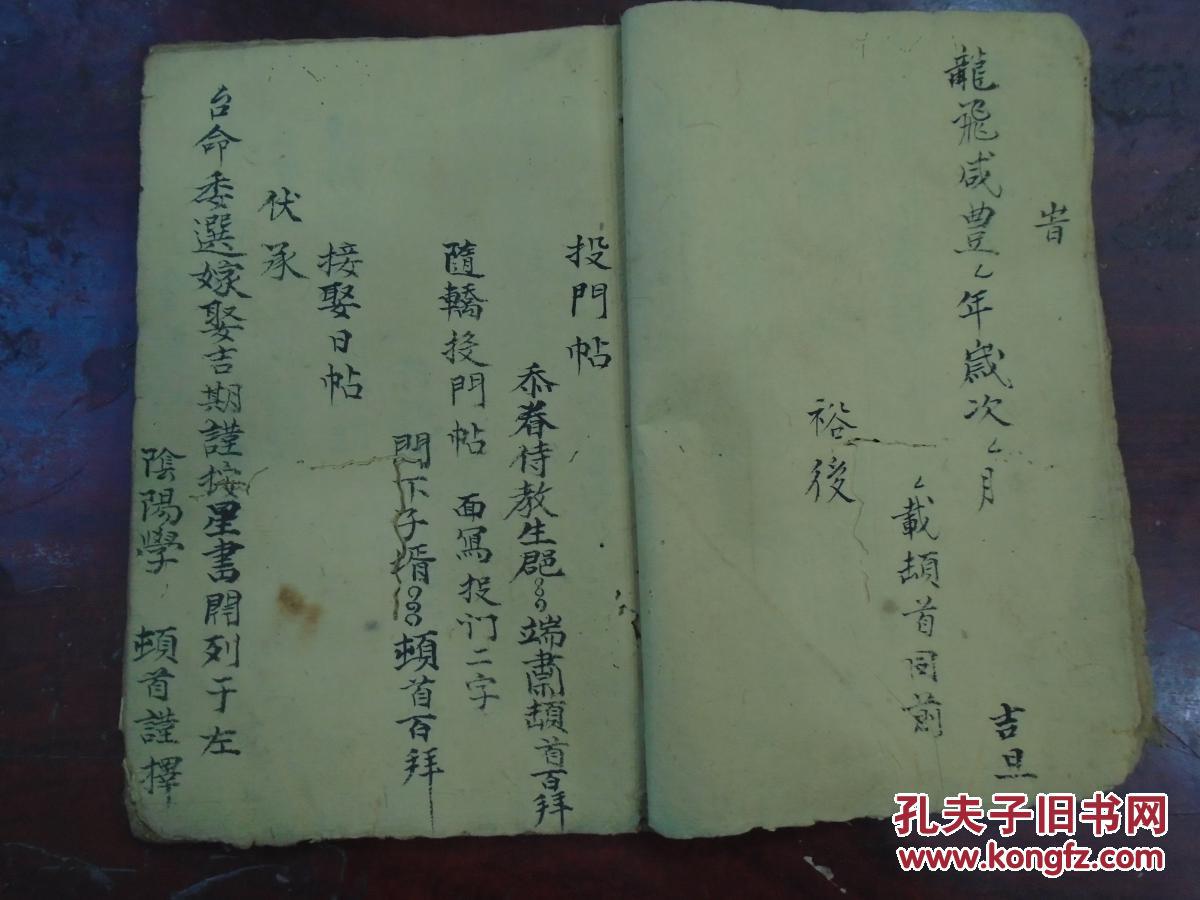 旹
龍飛咸豊厶年歲次厶月
吉旦
厶載頓首同前
裕後
投門帖
忝眷侍教生郡端肅頓首百拜
隨轎投門帖 面寫投门二字
門下子壻頓首百拜
接娶日帖
伏承
台命委選嫁娶吉期謹按星書開列于左
陰陽學 頓首謹擇
孔夫子旧书网
www.kongfz.com